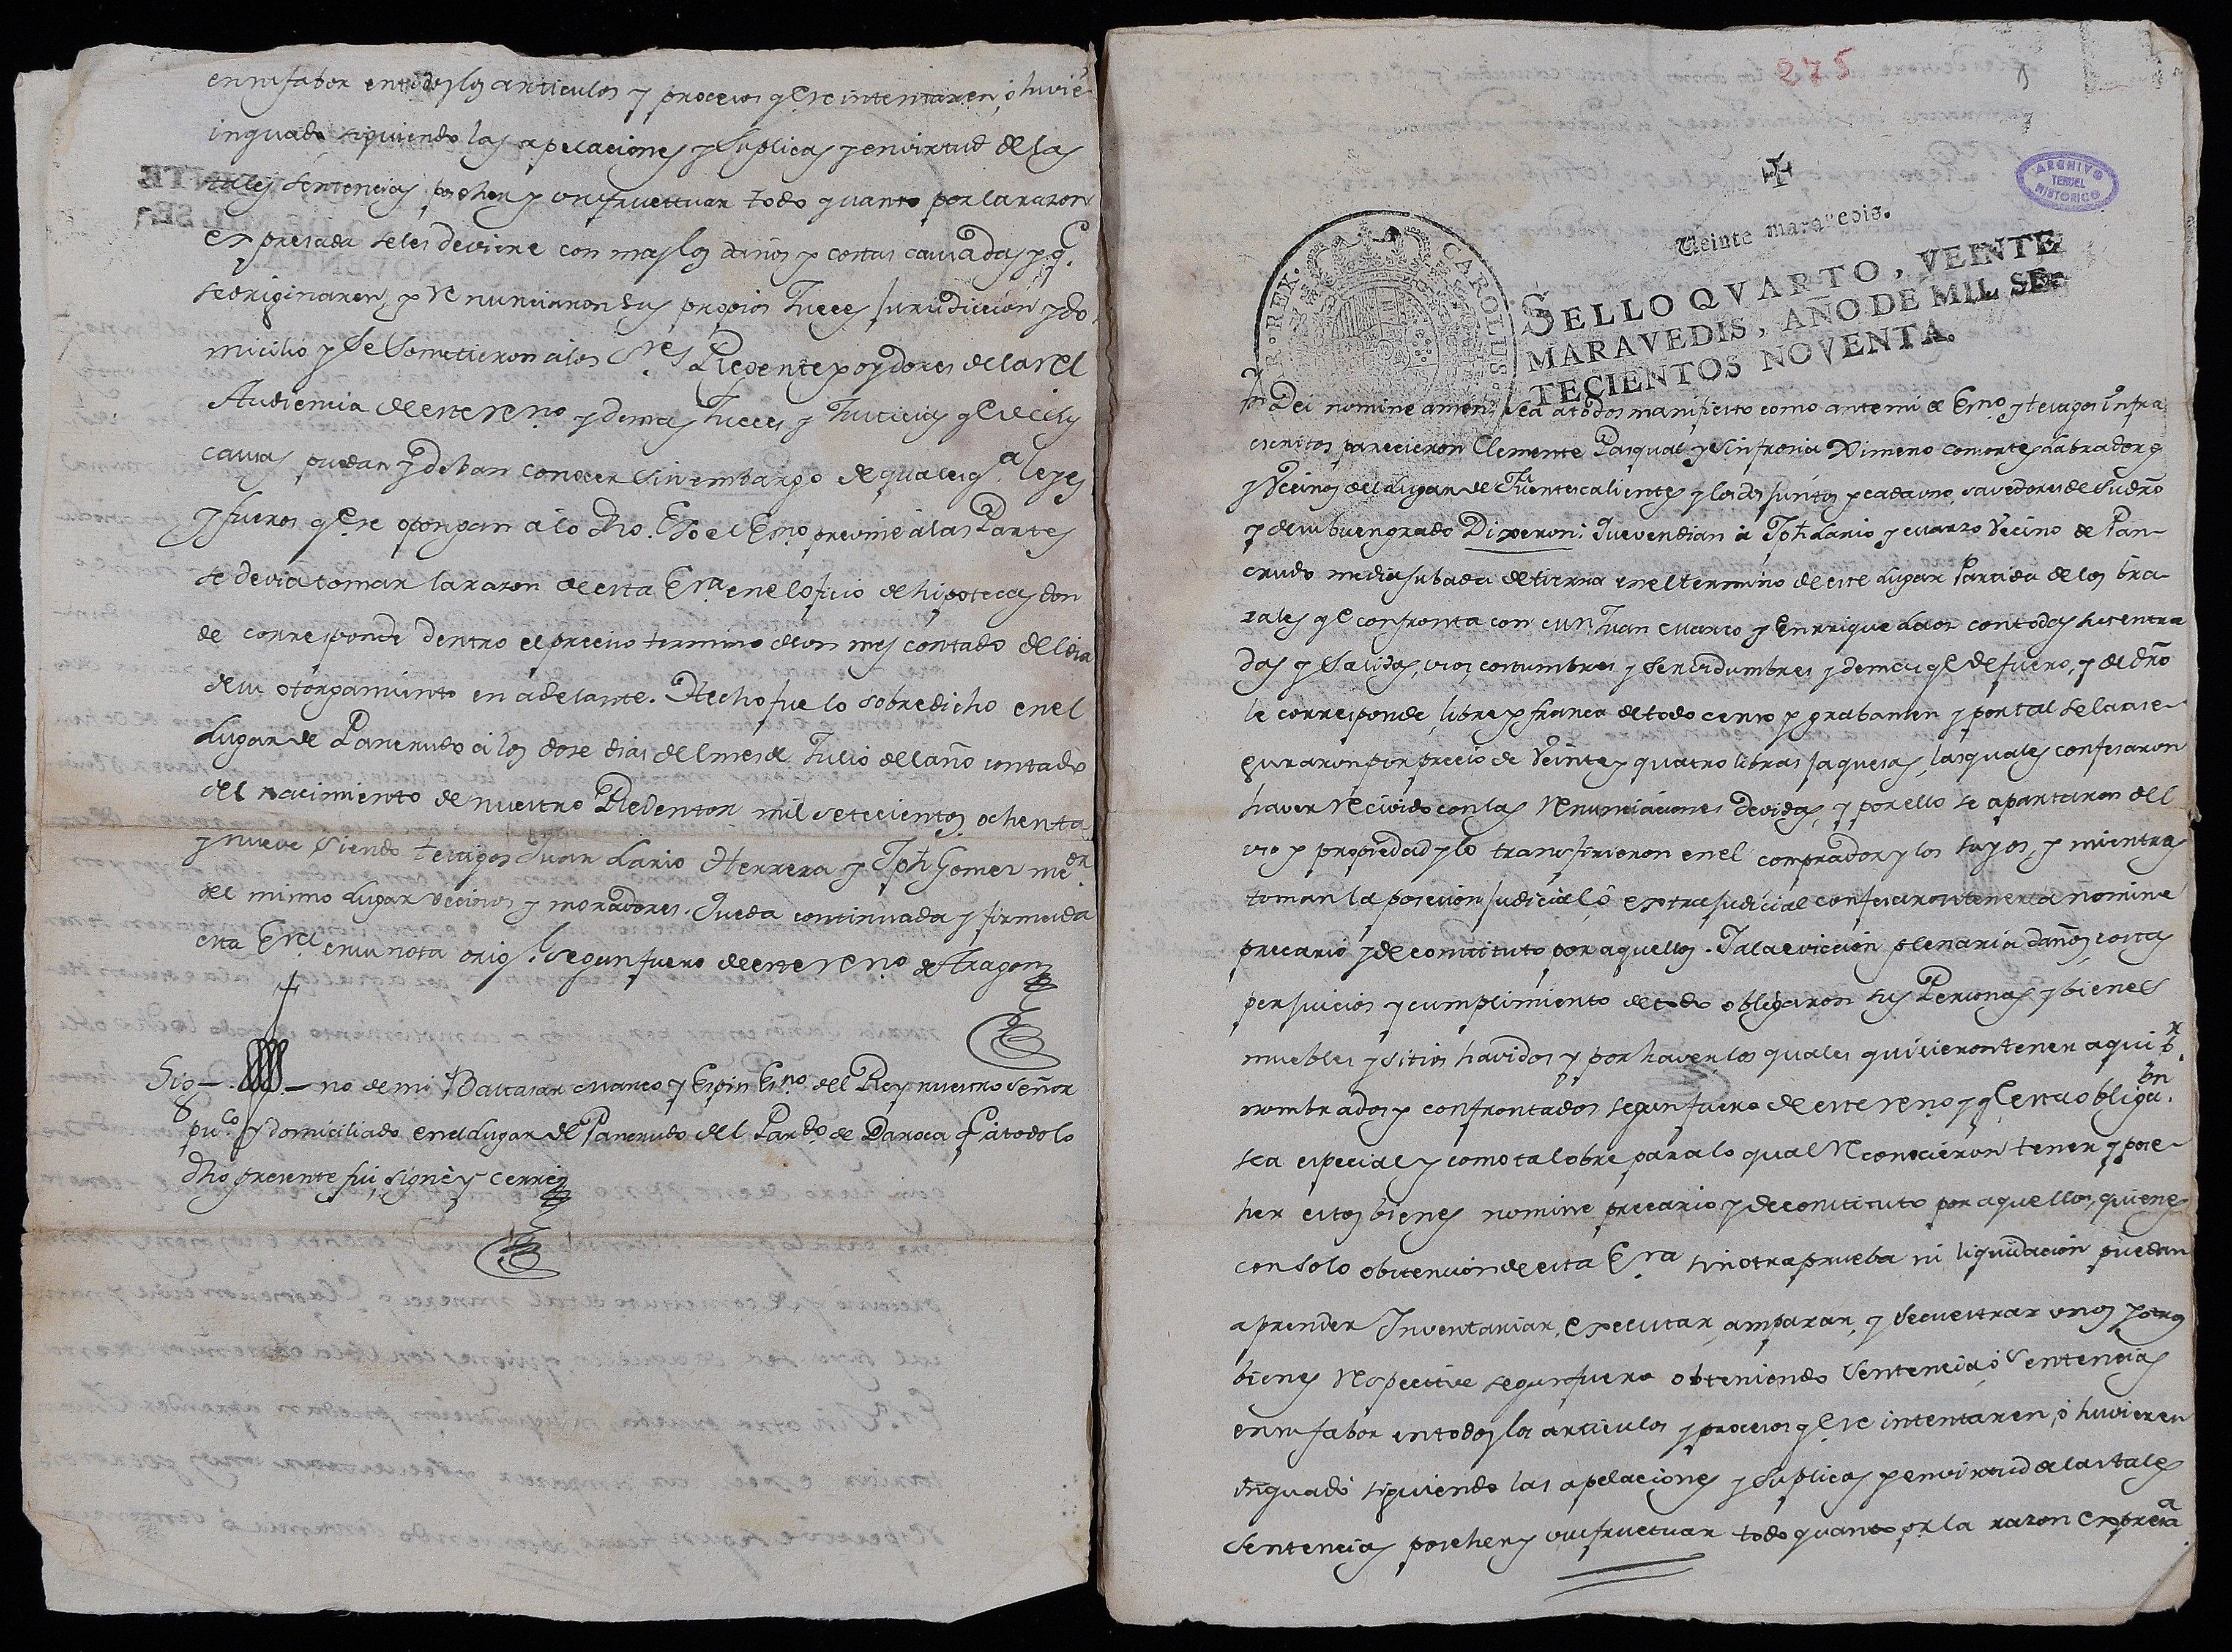 en su fabor en todos los articulos y procesos q.e se intentaren, ò huvie-
inguado siguiendo las apelaciones y suplicas y en virtud de las
tales sentencias poseher y usufructuar todo quanto por la razon
expresada se les deviere con mas los daños y costas causadas y q.e
se originaren, y renunciaron sus propios Jueces jurisdiccion y do-
micilio y se sometieron à los S.res Regente y oydores de la rel
Audiencia de este reyno y demas Jueces y Justicias q.e de ellas
causas puedan y deban conocer sin embargo de qualesq.a leyes
y fueros q.e se opongan à lo dho. E yo el Es.no previne à las Partes
se devia tomar la razon de esta Es.ra en el oficio de hipotecas don
de corresponde dentro el preciso termino de un mes contado del dia
de su otorgamiento en adelante. Hecho fue lo sobredicho en el
Lugar de Pancrudo à los dose dias del mes de Julio del año contado
del nacimiento de nuestro Redentor mil setecientos ochenta
y nueve siendo testigos Juan Lario Herrera y Jph Gomez me.or
del mismo Lugar vecinos y moradores. Queda continuada y firmada
esta Es.ra en su nota orig.l segun fuero de este reyno de Aragon
Sig-.-no de mi Baltasar Marco y Espin Es.no del Rey nuestro señor
pu.co y domiciliado en el Lugar de Pancrudo del Par.do de Daroca q.e à todo lo
dho presente fui, signè y cerrè
275
ARCHIVO HISTORICO TERUEL
Veinte maravedis.
CAROLUS
R. REX.
SELLO QVARTO, VEINTE
MARAVEDIS, AÑO DE MIL SE-
TECIENTOS NOVENTA.
In Dei nomine amen: sea a todos manifiesto como ante mi el Es.no y testigos infra
escritos parecieron Clemente Pasqual y Sinfrosia Ximeno consortes Labradores
y Vecinos del Lugar de Fuentescalientes y los dos juntos y cada uno, savedores de su dro
y de su buen grado Dixeron: Que vendian à Jph Lario y Marzo Vecino de Pan-
crudo media jubada de tierra en el termino de este Lugar Partida de los bra-
zales q.e confronta con Juan Marco y Enrrique Laos con todas sus entra
das y salidas, usos costumbres y servidumbres y demas q.e de fuero, y de dro
le corresponde, libre y franca de todo censo y grabamen y por tal se la ase-
guraron por precio de Veinte y quatro libras jaquesas, las quales confesaron
haver recivido con las renunciaciones devidas, y por ello se apartaron del
uso y propiedad y lo transfirieron en el comprador y los suyos, y mientras
toman la posesion judicial, ò extrajudicial confesaron tenerla nomine
precario y de constituto por aquellos. Y a la eviccion plenaria daños costas
perjuicios y cumplimiento de todo obligaron sus Personas y bienes
muebles y sitios havidos y por haver los quales quisieron tener aqui p.r
nombrados y confrontados segun fuero de este reyno y q.e esta obliga.on
sea especial y como tal obre para lo qual reconocieron tener y pose-
her estos bienes nomine precario y de constituto por aquellos, quienes
con solo obtencion de esta Es.ra sin otra prueba ni liquidacion puedan
aprender Inventariar, executar, amparar, y secuestrar unos y otros
bienes respective segun fuero obteniendo Sentencia, ò sentencias
en su fabor en todos los articulos y procesos q.e se intentaren, ò huvieren
inguado siguiendo las apelaciones y suplicas y en virtud de las tales
Sentencias poseher y usufructuar todo quanto por la razon expresa